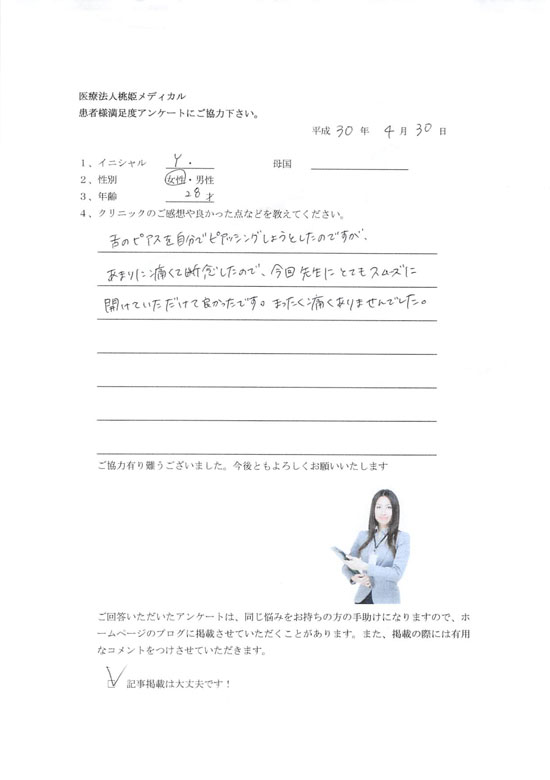 医療法人桃姫メディカル
患者様満足度アンケートにご協力下さい。
平成 30 年 4 月 30 日
1、イニシャル Y. 母国
2、性別 女性・男性
3、年齢 28才
4、クリニックのご感想や良かった点などを教えてください。
舌のピアスを自分でピアッシングしようとしたのですが、
あまりに痛くて断念したので、今回先生にとてもスムーズに
開けていただけて良かったです。まったく痛くありませんでした。
ご協力有り難うございました。今後ともよろしくお願いいたします
ご回答いただいたアンケートは、同じ悩みをお持ちの方の手助けになりますので、ホ
ームページのブログに掲載させていただくことがあります。また、掲載の際には有用
なコメントをつけさせていただきます。
記事掲載は大丈夫です！